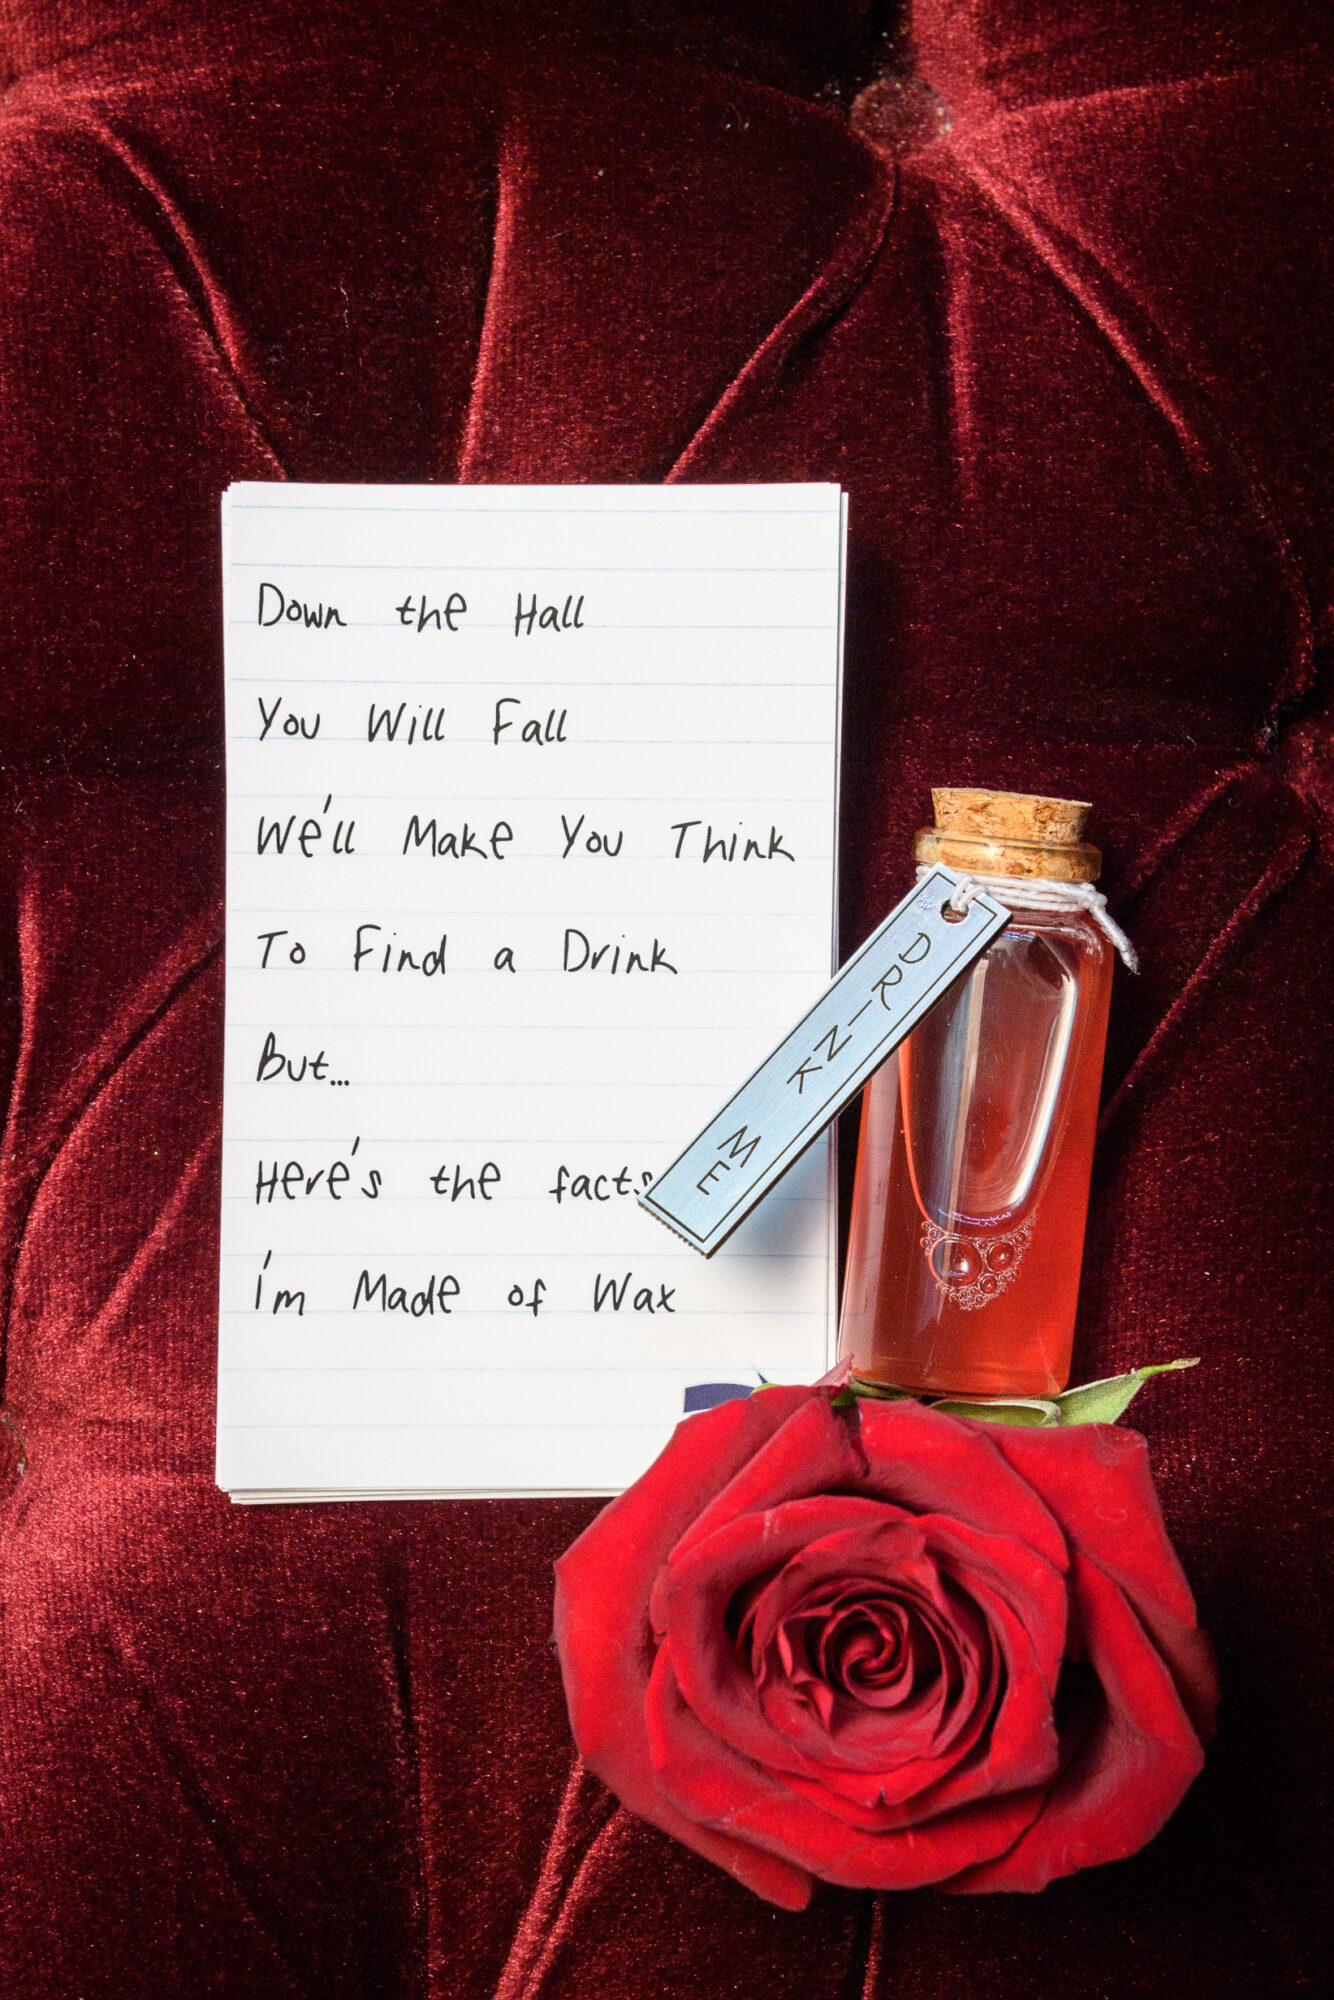 Down the Hall
You Will Fall
We'll Make You Think
To Find a Drink
But...
Here's the facts
I'm Made of Wax
DRINK ME